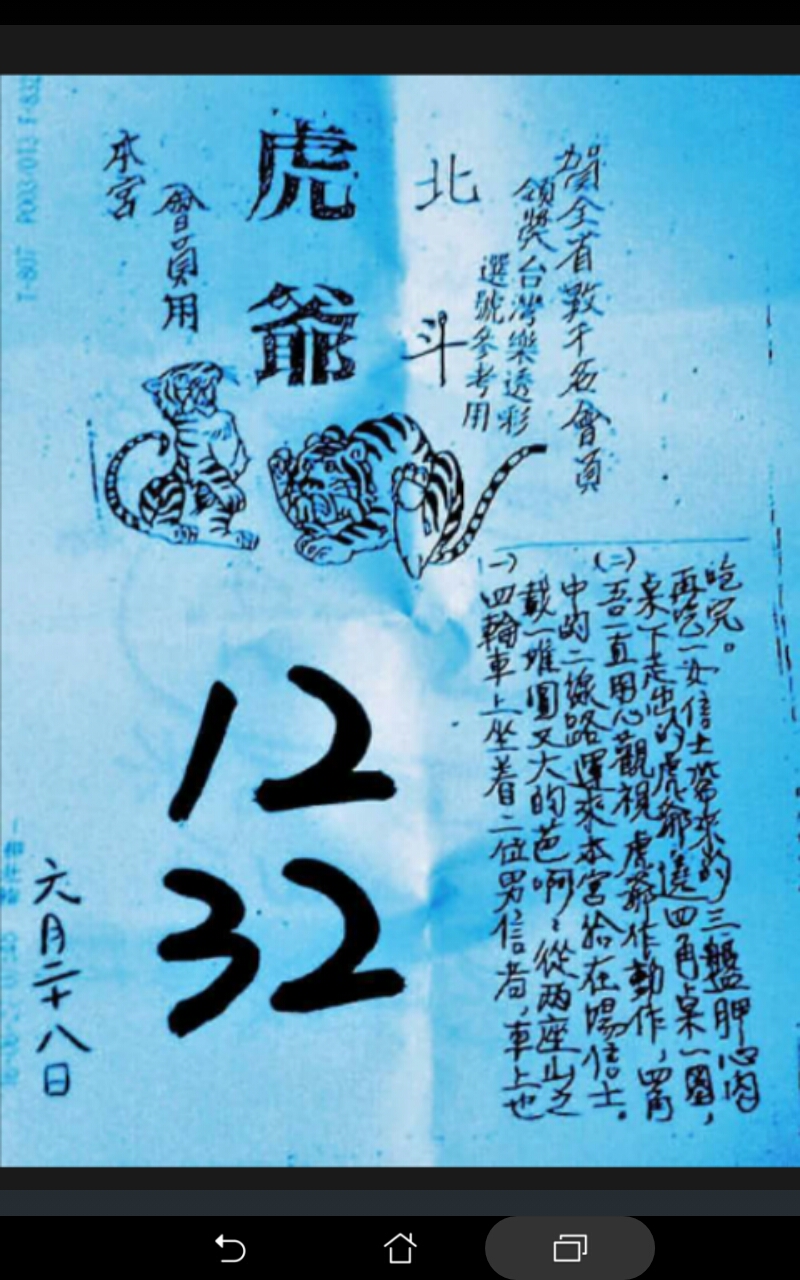 賀全省數千名會員
領獎台灣樂透彩
選號參考用
北斗
虎爺
會員用
本宮
(一)
四輪車上坐着二位男信者,車上也
載一堆圓又大的芭啊,從兩座山之
中的二線路運來本宮給在場信士。
(二)
吾一直用心觀視虎爺作動作,四角
桌下走出的虎爺遶四角桌一圈,
再吃一女信士帶來的三盤胛心肉
吃完。
12
32
六月二十八日
T-807 P003/013 F-832